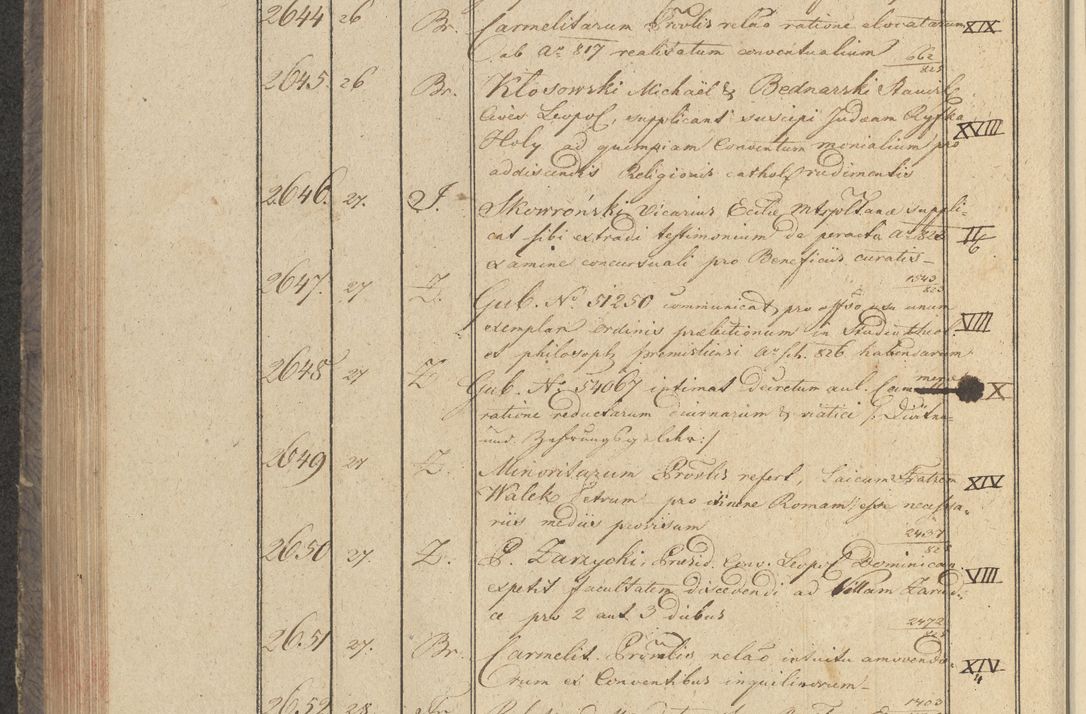 2644 26 Br. Carmelitarum Provlis relao ratione elocatarum XIX
ab Ao 817 realitatum conventualium 662/825
2645. 26 Br. Kłosowski Michaël & Bednarski
Cives Leopol, supplicant suscipi Judæam Ryfka XVIII
Holy ad quempiam Conventum monialium pro
addiscendis Religionis cathol. rudimentis
2646. 27. J. Skowroński Vicarius Eccliæ Mtropltanæ suppli-
cat sibi extradi testimonium de peracto Ao 826 II/6
examine concursuali pro Beneficiis curatis-
1543/823
2647. 27 Z. Gub. No 51250 communicat pro offso usu unum
exemplar ordinis prælectionum in VIII
et philosoph premisliensi Ao sch. 826 habendarum
2648 27 Z. Gub. No 54067 intimat decretum aul. X
ratione reductarum diurnarum & viatici /: Diäten-
und Zehrungsgelder :/
2649 27 Z. Minoritarum Provlis refert, Laicum Fratrem XIV
Walek Petrum pro itinere Romam esse necessa-
riis mediis provisum
2437/825
2650 27. Z. P. Zarzycki, Præsid. Conv. Leopol Dominican. VIII
expetit facultatem discedendi ad Villam Zarud-
ce pro 2 aut 3 diebus
2472/825
2651 27. Br. Carmelit. Provlis relao intuitu amovendo- XIV/4
rum ex Conventibus inquilinorum-
2652 28 1703